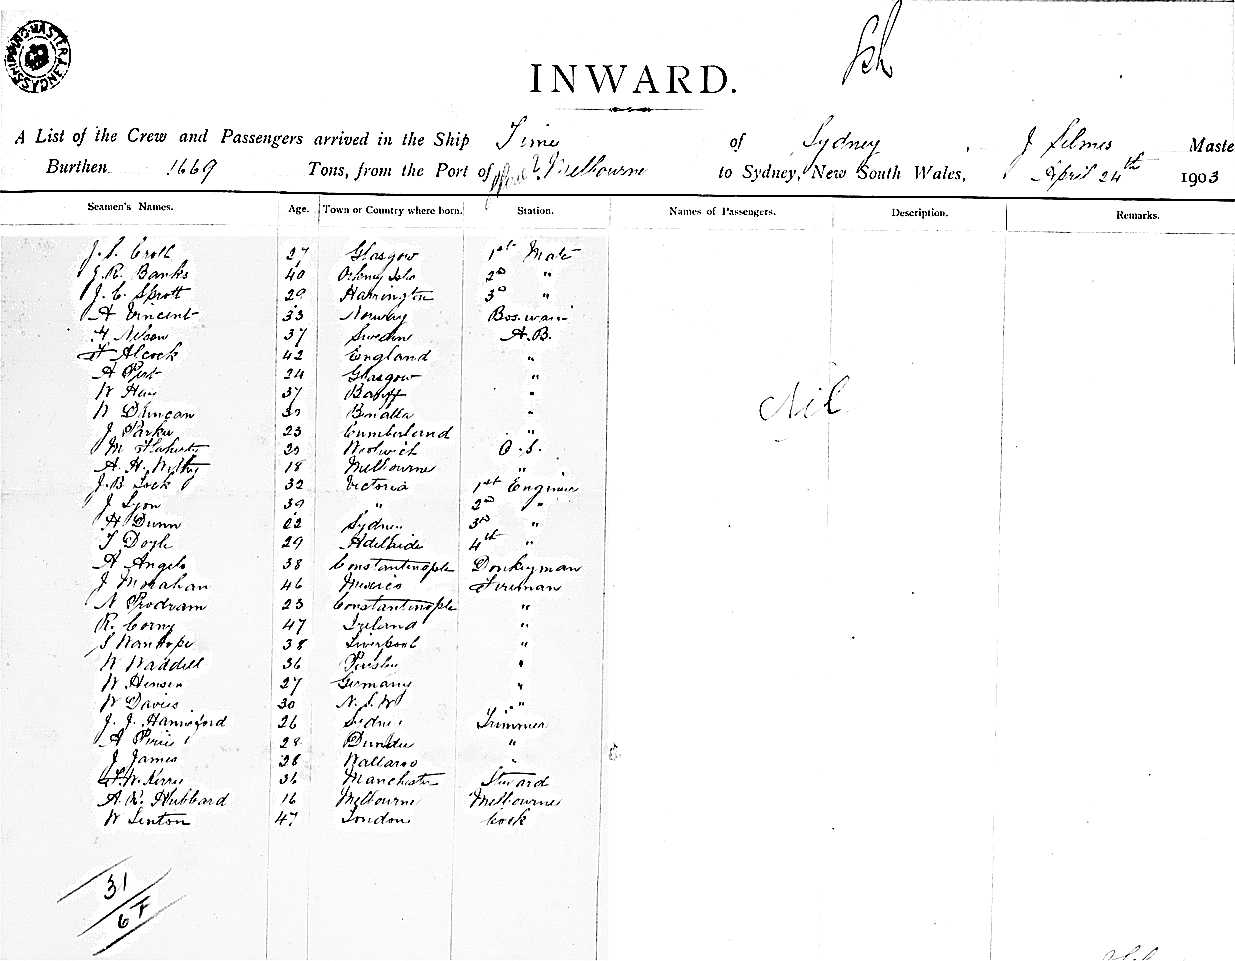 SHIPPING MASTER SYDNEY
INWARD.
A List of the Crew and Passengers arrived in the Ship Time of Sydney, J Selmes Maste
Burthen 1669 Tons, from the Port of Melbourne to Sydney, New South Wales, April 24th 1903
Seamen's Names. Age. Town or Country where born. Station. Names of Passengers. Description. Remarks.
J. S. Croll 27 Glasgow 1st Mate
J. R. Banks 40 Orkney Isls 2nd "
J. C. Sprott 29 Harrington 3rd "
A Vincent 33 Norway Bos.wain
H Nelson 37 Sweden A.B.
F Alcock 42 England "
A 24 Glasgow "
W Hay 37 Banff "
W Duncan Benalla "
Nil
J Parker 23 Cumberland "
M Flaherty 20 Woolwich O.S.
A. H. 18 Melbourne "
J. B Lock 32 Victoria 1st Engineer
J Lyon 39 " 2nd "
H Dunn 22 Sydney 3rd "
T Doyle 29 Adelaide 4th "
A Angelo 38 Constantinople Donkeyman
J Monahan 46 Mexico Fireman
N Prodram 23 Constantinople "
R. Corny 47 Ireland "
S Wanhope 38 Liverpool "
W Waddell 36 Paisley "
W Hensen 27 Germany "
W Davies 30 N.S.W "
J. J. Hannaford 26 Sydney Trimmer
A Pirie 28 Dundee "
J James 28 Wallaroo "
F. W. Kerr 36 Manchester Steward
A. R. Hubbard 16 Melbourne Melbourne
W Linton 47 London Cook
31
6 F